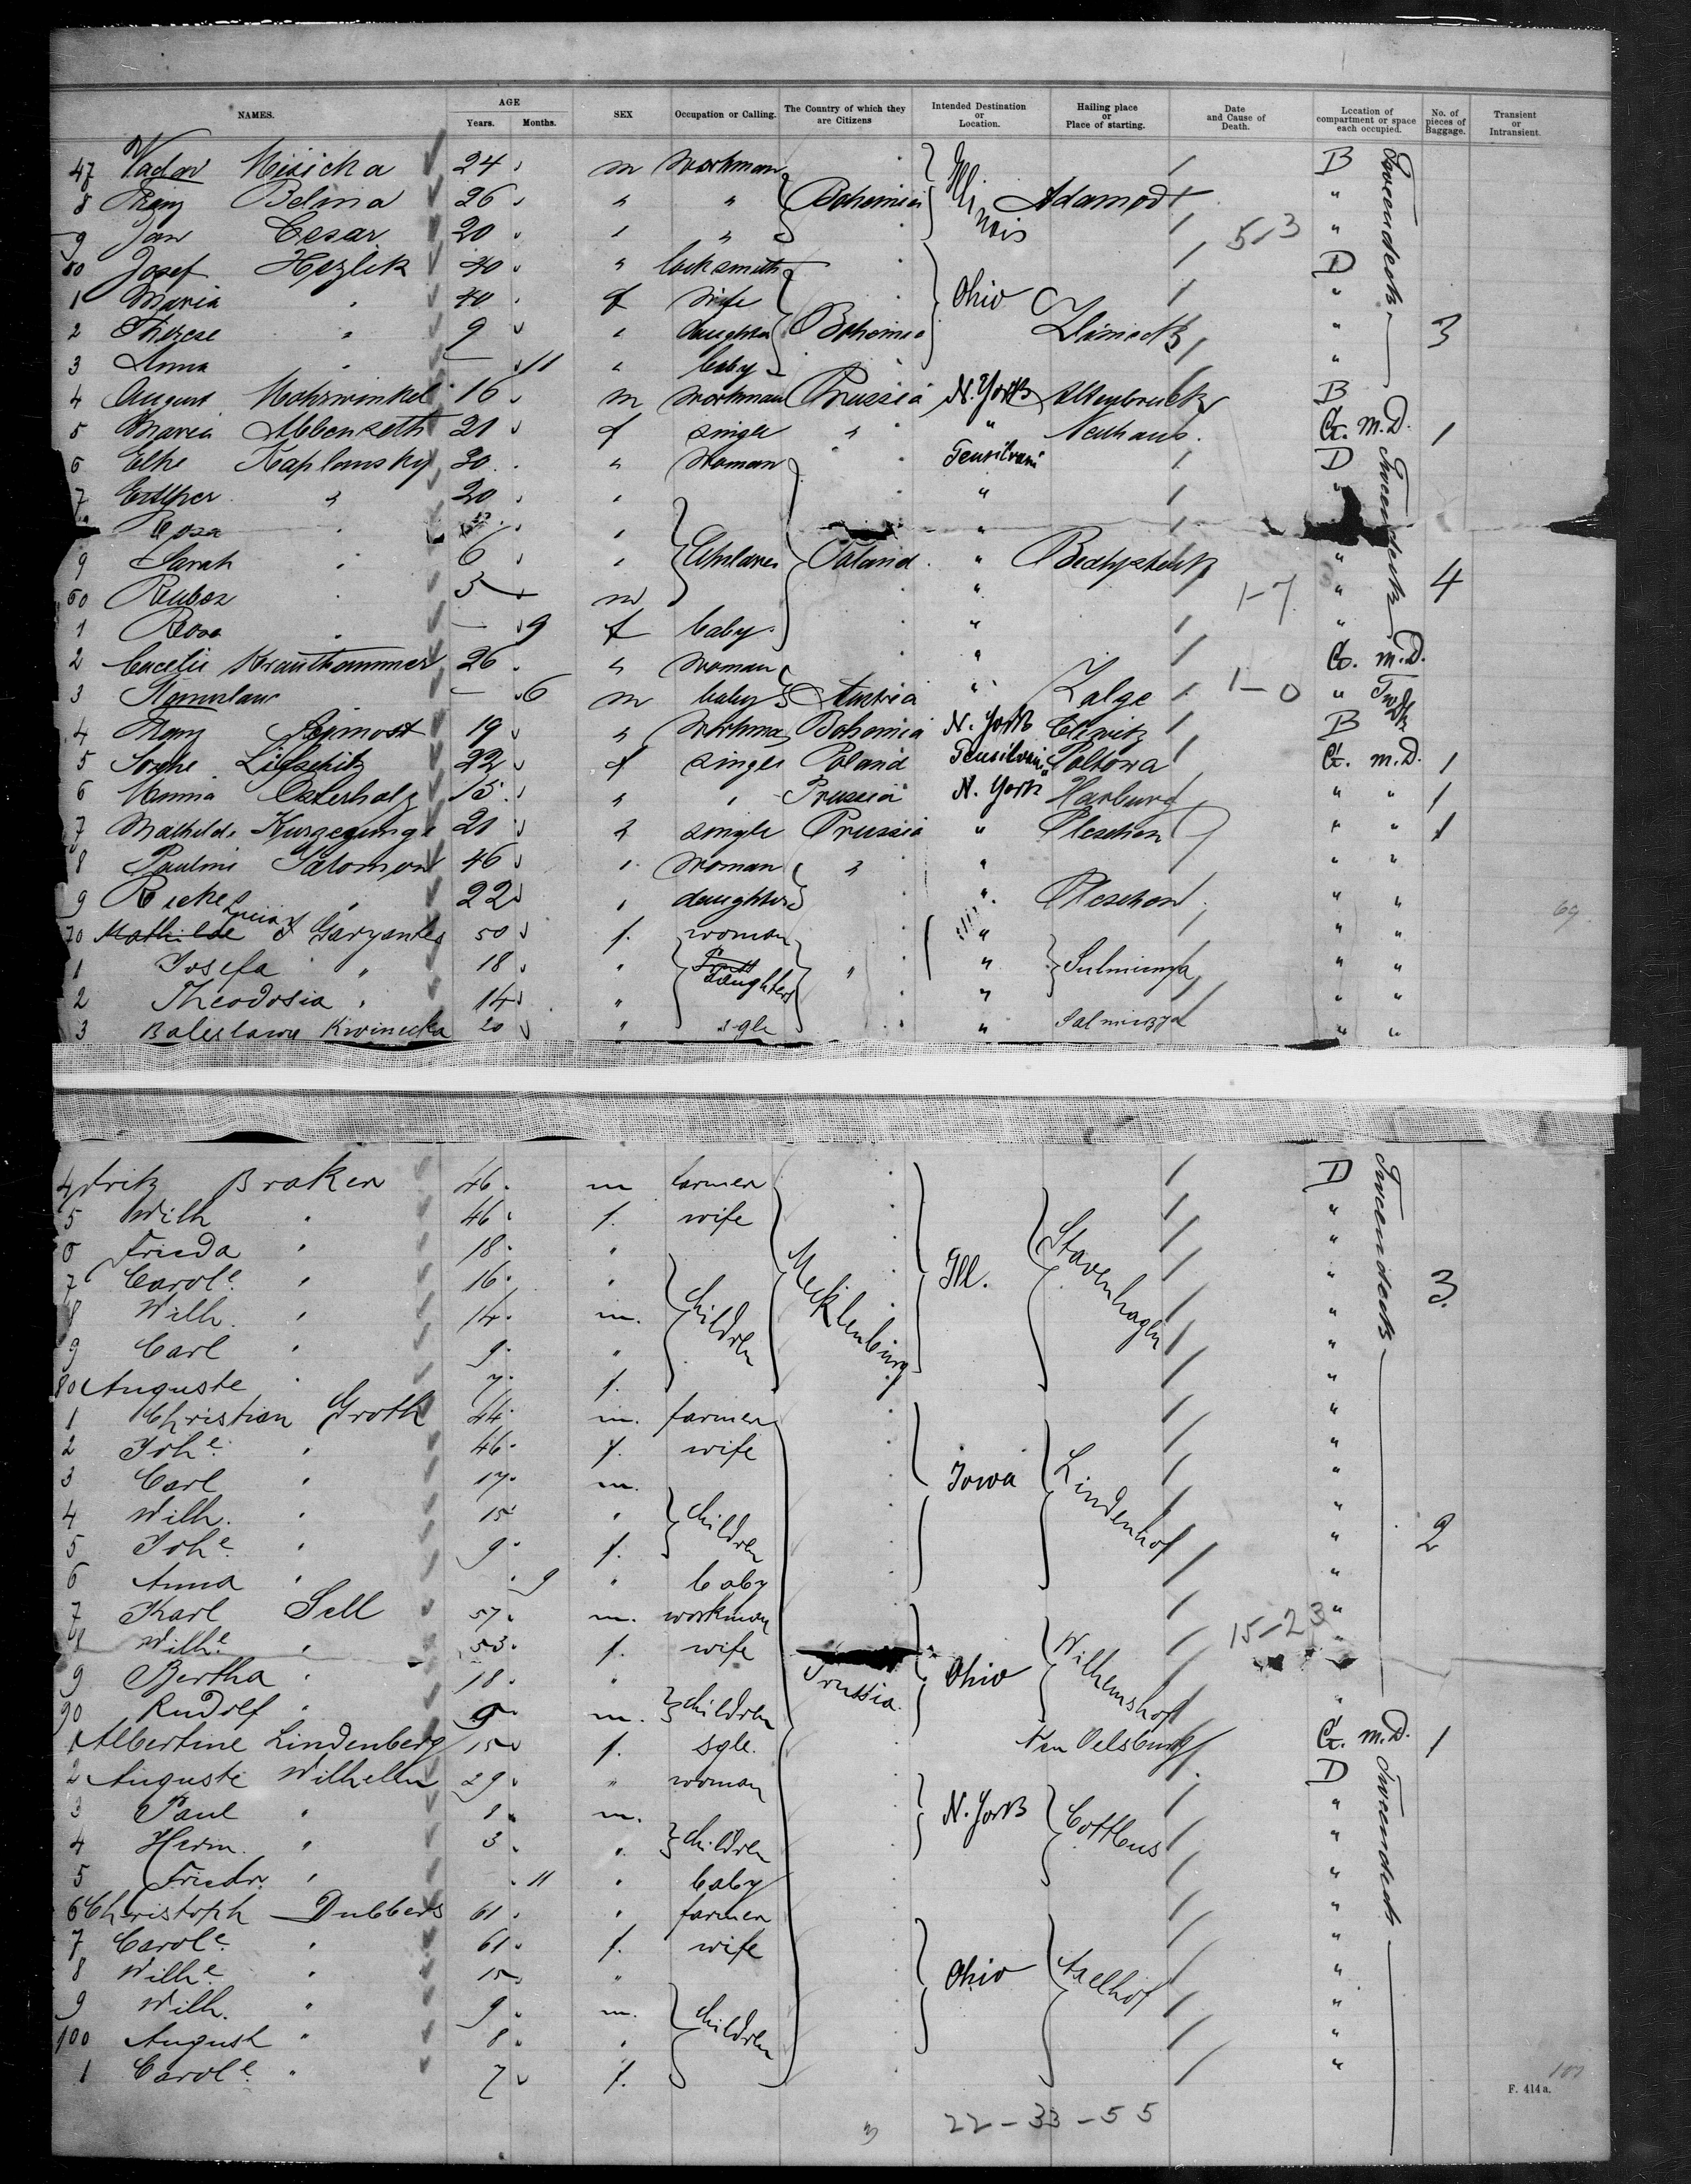 NAMES. AGE Years. Months. SEX Occupation or Calling. The Country of which they are Citizens Intended Destination or Location. Hailing place or Place of starting. Date and Cause of Death. Location of compartment or space each occupied. No. of pieces of Baggage. Transient or Intransient.
47 Misicka 24 m workman B Tweendeck
8 Belina 26 " " Bohemia Illinois "
9 Jan Cesar 20 " " 5-3 "
50 Josef Hezlik 40 " locksmith D
1 Maria " 40 f wife Ohio "
2 Therese " 9 " daughter Bohemia " 3
3 Anna " 11 " baby "
4 August Mohrwinkel 16 m workman Prussia N. York Altenbruck B
5 Maria Abbenseth 21 f single " " Neuhaus. G. m.D. 1
6 Elke Kaplansky 30 " woman Pensilvani D Tweendeck
7 Esther " 20 " "
Rosa " "
9 Sarah " 6 " Poland "  "
60 Ruben 5 m " 1-7 " 4
1 Rosa " 9 f baby " "
2 Krauthammer 26 " woman " G. m.D.
3 6 m baby Austria " Zalge 1-0 "
4 19 " workman Bohemia N. York B
5 Sophie Lifschitz 22 f single Poland Pensilvani Poltowa G. m.D. 1
6 Osterholz 15 " " Prussia N. York Harburg " " 1
7 Mathilde 21 " single Prussia " Pleschen " " 1
8 Pauline Salomon 46 " woman " " " "
9 22 " daughter " Pleschen " " 69
70 Mathilde Garyantes 50 f. woman " " "
1 Josefa " 18 " daughters " " Sulmierzya " "
2 Theodosia " 14 " " " "
3 Boleslawa Kwinecka 20 " sgle " Salmierzya " "
4 Fritz Braker 46 m farmer D Tweendeck
5 Wilh " 46 f. wife "
6 Frieda " 18 " "
7 Carole " 16 " Mecklenburg Ill. Stavenhagen " 3.
8 Wilh. " 14 m. children "
9 Carl " 9 " "
80 Auguste " 7 f. "
1 Christian Groth 44 m. farmer "
2 Johe " 46 f. wife "
3 Carl " 17 m. Iowa Lindenhof "
4 Wilh. " 15 " children "
5 Johe " 9 f. " 2
6 Anna " 9 " baby "
7 Karl Sell 57 m. workman 15-23 "
8 Wilhe " 53 f. wife "
9 Bertha " 18 " Prussia. Ohio Wilhemshof
90 Rudolf " 9 m. children "
1 Albertine Lindenberg 15 f. sgle. Neu Oelsburg G. m.D. 1
2 Auguste Wilhelm 29 " woman D Tweendeck
3 Paul " 8 m. N. York Cottbus "
4 Herm. " 3 " children "
5 Friedr. " 11 " baby "
6 Christoph Dubbers 61 " farmer "
7 Carole " 61 f. wife "
8 Wilhe " 15 " Ohio Axelhof "
9 Wilh. " 9 m. children "
100 August " 8 " "
1 Carole " 7 f. "
F. 414 a.
22-33-55